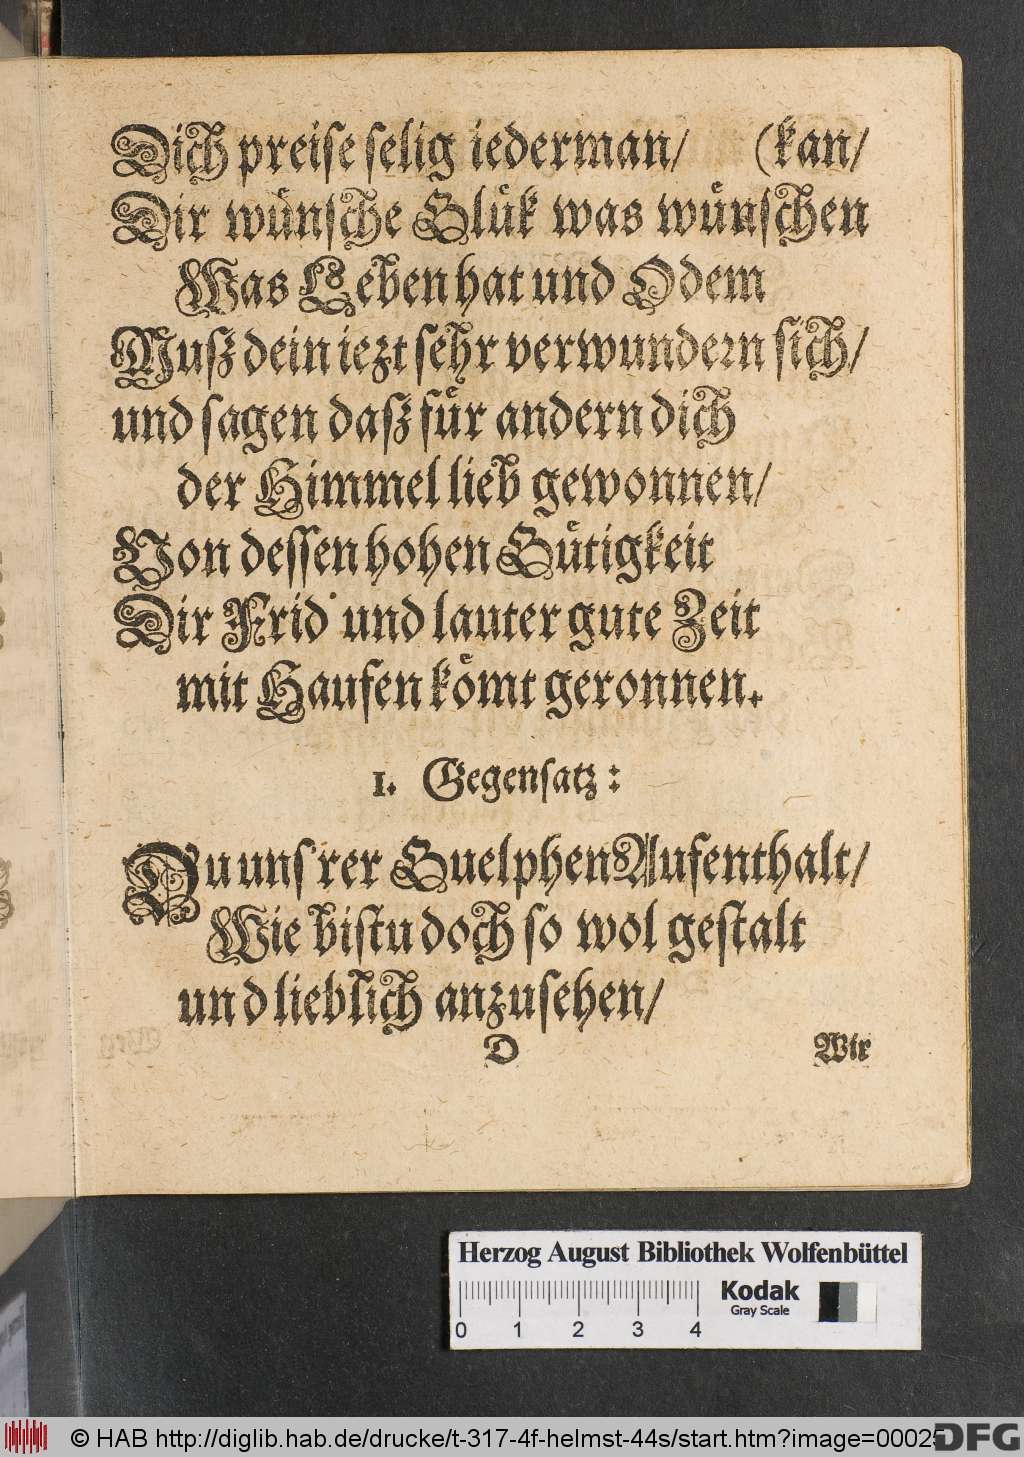 Dich preise selig iederman/ (kan/
Dir wünsche Glük was wünschen
Was Leben hat und Odem
Musz dein iezt sehr verwundern sich/
und sagen dasz für andern dich
der Himmel lieb gewonnen/
Von dessen hohen Gütigkeit
Dir Frid' und lauter gute Zeit
mit Haufen kömt geronnen.
1. Gegensatz:
Du uns'rer Guelphen Aufenthalt/
Wie bistu doch so wol gestalt
und lieblich anzusehen/
D Wir
Herzog August Bibliothek Wolfenbüttel
Kodak
Gray Scale
0 1 2 3 4
© HAB http://diglib.hab.de/drucke/t-317-4f-helmst-44s/start.htm?image=00025
DFG